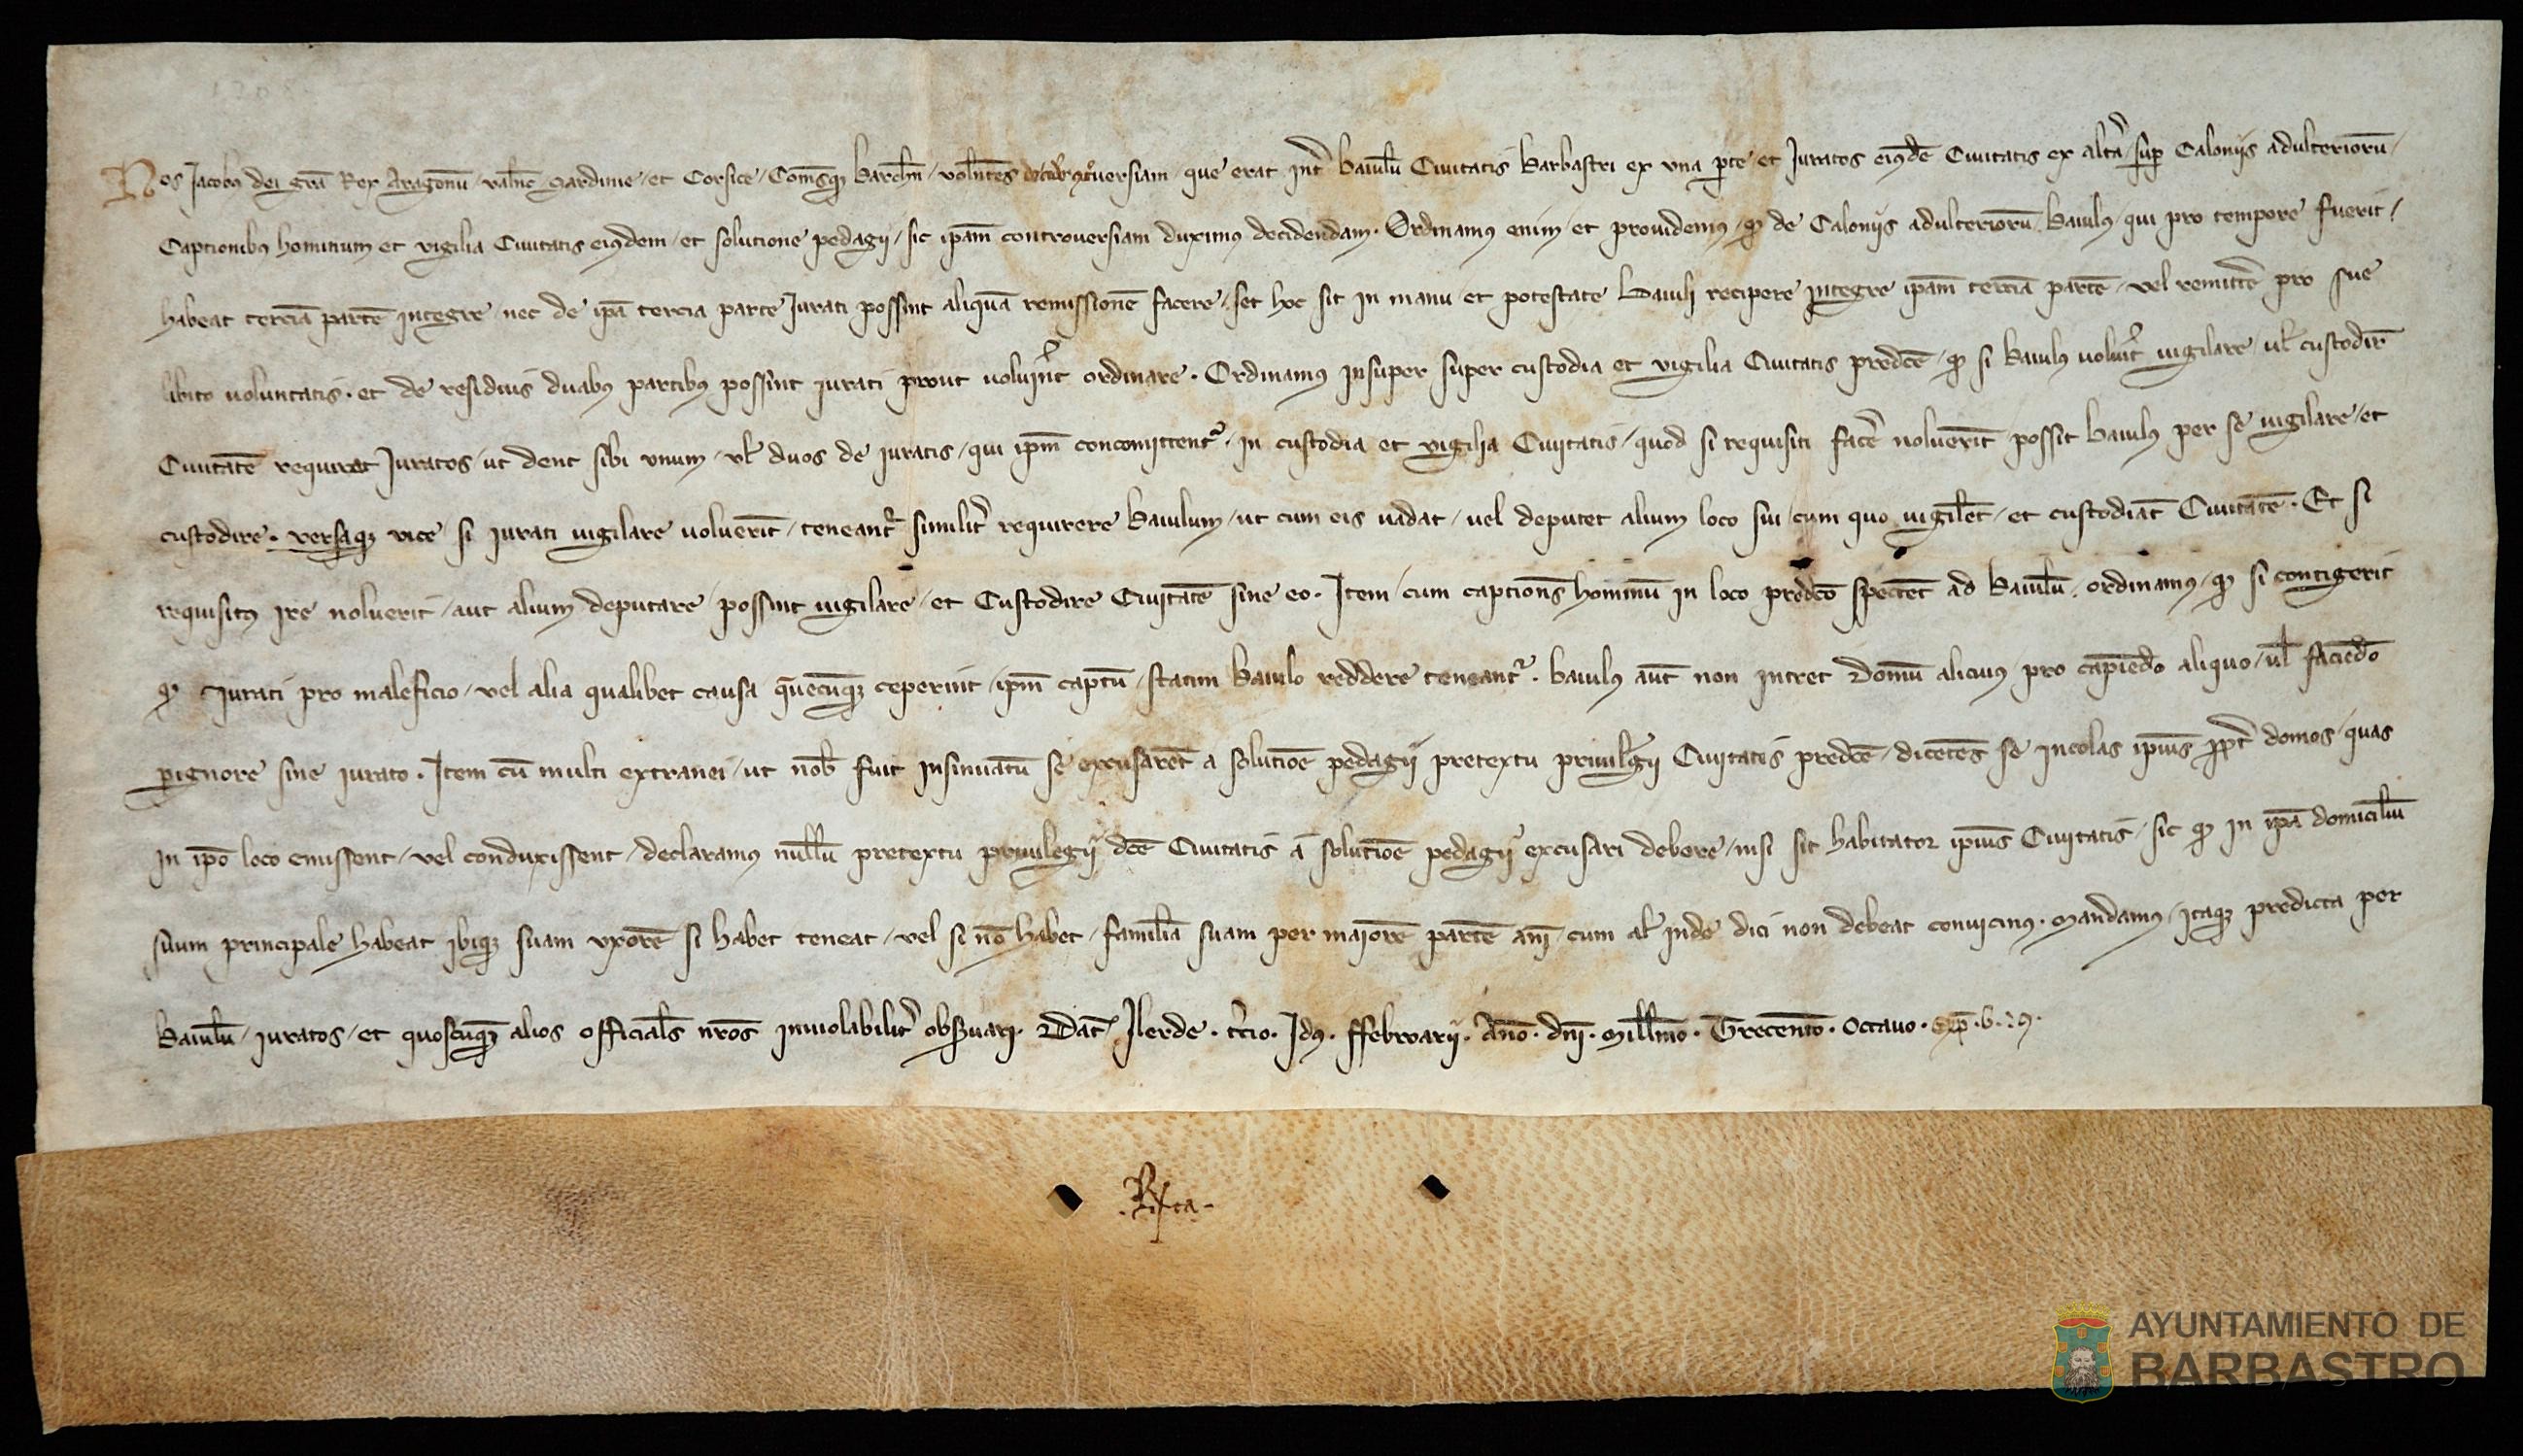 Nos Jacobus dei grã Rex Aragonũ valñe Sardinie et Corsice Comesq̃ barchñ volentes decidere cõtroversiam que erat inť baiulũ Civitatis barbastri ex una pte et Juratos eiusdẽ Civitatis ex altã sup̃ Caloniis adulteriorũ
Captionibus hominum et vigilia Civitatis eiusdem et solutione pedagii sic ip̃am controversiam duximus decidendam. Ordinamus enim et providemus qd de Caloniis adulteriorũ baiulus qui pro tempore fuerit
habeat terciã partẽ integre nec de ip̃a tercia parte Jurati possint aliquã remissionẽ facere set hoc sit in manu et potestate baiuli recipere integre ip̃am terciã partẽ vel remitt'e pro sue
libito voluntatis. et de residuis duabus partibus possint iurati prout voluer̃int ordinare. Ordinamus insuper super custodia et vigilia Civitatis predc̃e qd si baiulus voluer̃it vigilare ul' custodir̃
Civitatẽ requirat Juratos ut dent sibi unum ul' duos de iuratis qui ip̃m concomittent' in custodia et vigilia Civitatis quod si requisiti fac'e noluerĩt possit baiulus per se vigilare et
custodire. versaq̃ vice si iurati vigilare voluerĩt teneant' similit' requirere baiulum ut cum eis vadat vel deputet alium loco sui cum quo vigilẽt et custodiãt Civitatẽ. Et si
requisitus ire noluerit aut alium deputare possint vigilare et Custodire Civitatẽ sine eo. Item cum captiones hominũ in loco predc̃o spectẽt ad baiulũ ordinamus qd si contigerit
qd Jurati pro maleficio vel alia qualibet causa quẽcũq̃ ceperint ip̃m captũ statim baiulo reddere teneant'. baiulus aũt non intret domũ alicuius pro capiẽdo aliquo ul' faciẽdo
pignore sine iurato. Item cũ multi extranei ut nob' fuit insinuatũ se excusarẽt a solutiõe pedagii pretextu privilegii Civitatis predc̃e dicẽtes se incolas ipius ppt' domos quas
in ip̃o loco emissent vel conduxissent declaramus nullũ pretextu privilegii dc̃e Civitatis a solutiõe pedagii excusari debere nisi sit habitator ipius Civitatis sic qd in ip̃a domiciliũ
suum principale habeat ibiq̃ suam uxorẽ si habet teneat vel si nõ habet familiã suam per maiorẽ partẽ añi cum al' inde dici non debeat convicinus. Mandamus itaq̃ predicta per
baiulũ iuratos et quoscũq̃ alios officiales nr̃os inviolabilit' obs'vari. Dat' Ilerde. t'cio. Idus. ffebroarii. Año. dñi. Mill'mo. Trecentẽo. Octavo.
AYUNTAMIENTO DE
BARBASTRO